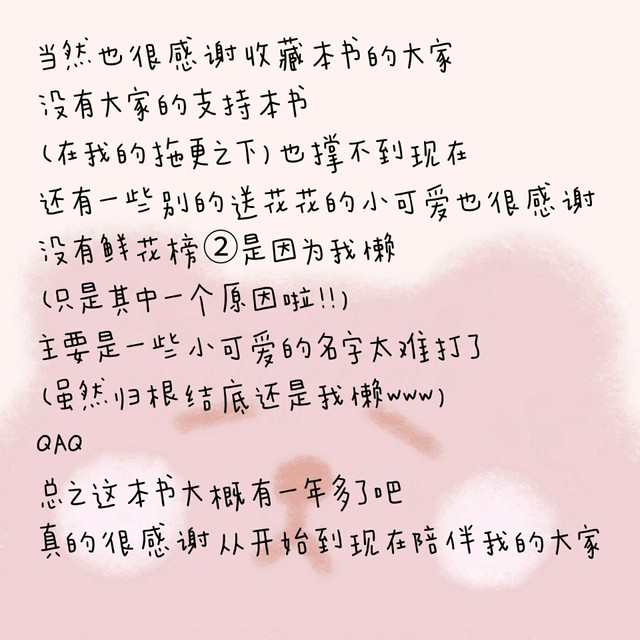 当然也很感谢收藏本书的大家
没有大家的支持本书
(在我的拖更之下)也撑不到现在
还有一些别的送花花的小可爱也很感谢
没有鲜花榜②是因为我懒
(只是其中一个原因啦!!)
主要是一些小可爱的名字太难打了
(虽然归根结底还是我懒www)
QAQ
总之这本书大概有一年多了吧
真的很感谢从开始到现在陪伴我的大家